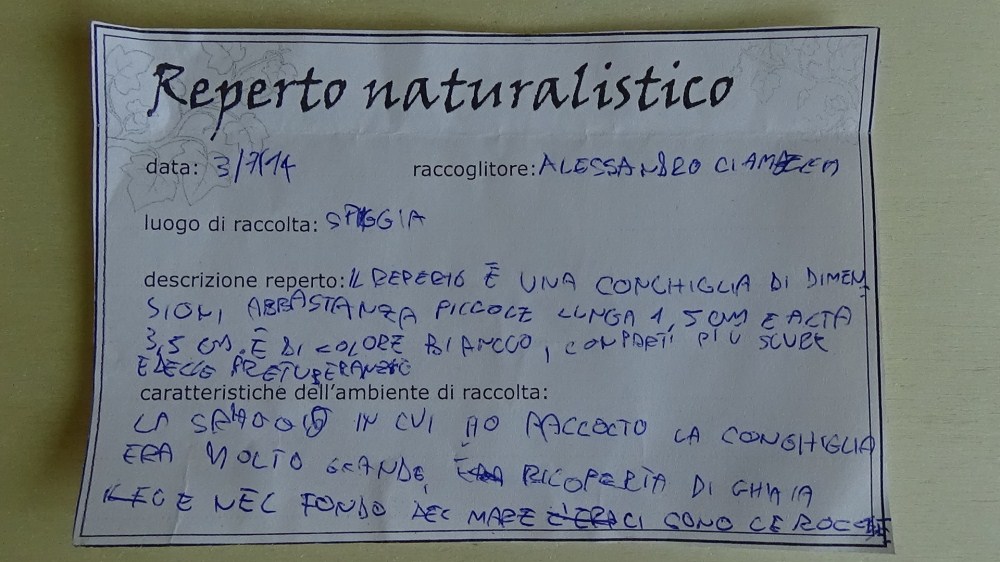 Reperto naturalistico
data: 3/7/14 raccoglitore: ALESSANDRO
luogo di raccolta: SPIGGIA
descrizione reperto: IL REPERTO È UNA CONCHIGLIA DI DIMEN
SIONI ABBASTANZA PICCOLE LUNGA 1,5 CM E ALTA
3,5 CM. È DI COLORE BIANCO, CON PARTI PIÙ SCURE
E DELLE
caratteristiche dell'ambiente di raccolta:
LA IN CUI HO RACCOLTO LA CONCHIGLIA
ERA MOLTO GRANDE, RICOPERTA DI GHIAIA
E NEL FONDO DEL MARE CI SONO LE ROCCE